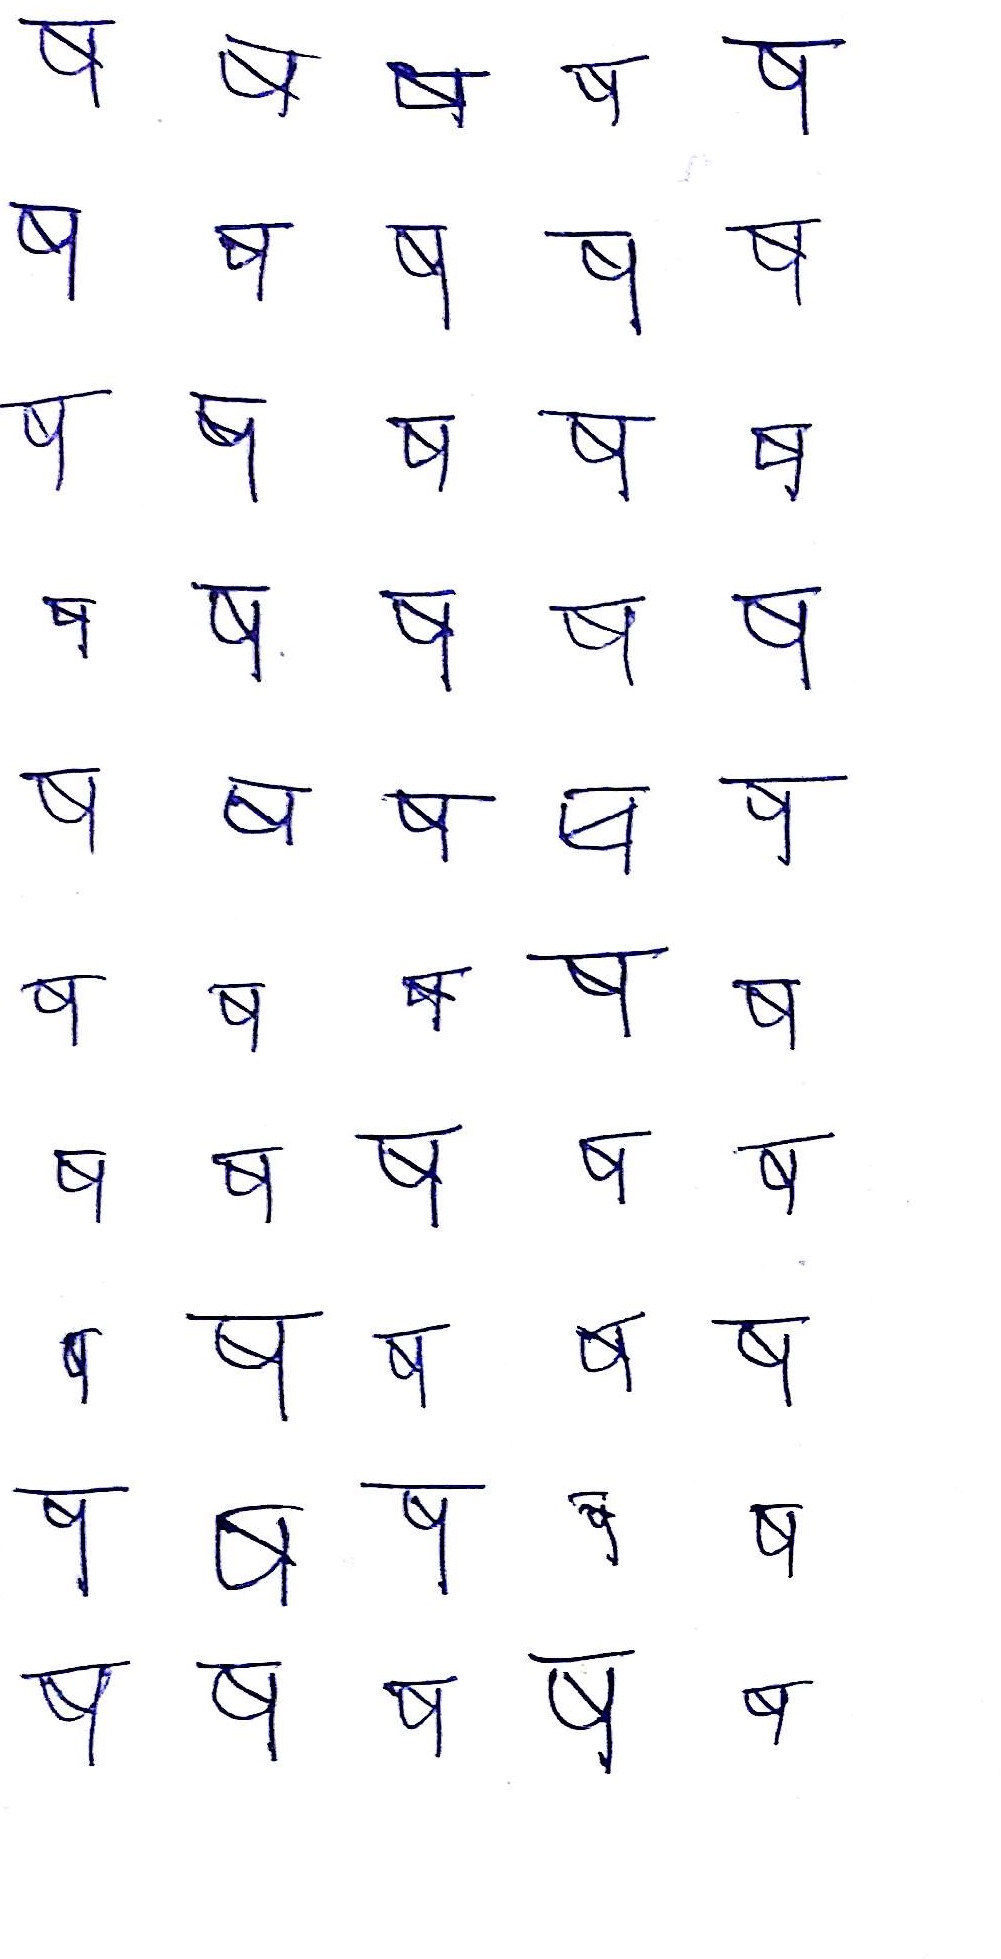 ष ष ष ष ष
ष ष ष ष ष
ष ष ष ष ष
ष ष ष ष ष
ष ष ष ष ष
ष ष ष ष ष
ष ष ष ष ष
ष ष ष ष ष
ष ष ष ष ष
ष ष ष ष ष